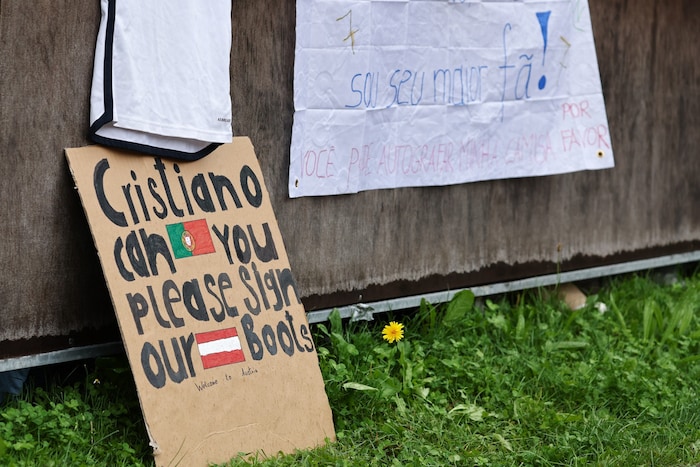 7
sou seu maior fã!
7
POR
VOCE PODE AUTOGRAFAR MINHA CAMISA FAVOR
Cristiano
can YOU
please sign
our Boots
Welcome to Austria